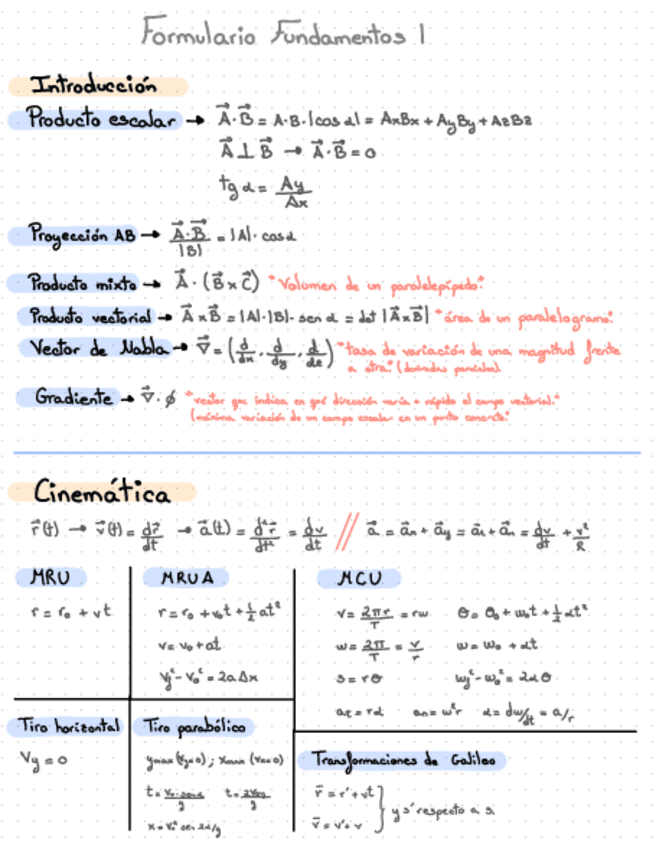 Formulario Fundamentos 1
Introducción
Producto escalar → A⃗·B⃗ = A·B·|cos α| = AxBx + AyBy + AzBz
A⃗ ⊥ B⃗ → A⃗·B⃗ = 0
tg α = Ay/Ax
Proyección AB → A⃗·B⃗/|B| = |A|·cos α
Producto mixto → A⃗·(B⃗ x C⃗) "Volumen de un paralelepípedo."
Producto vectorial → A⃗ x B⃗ = |A|·|B|·sen α = det |A⃗xB⃗| "área de un paralelogramo."
Vector de Nabla → ∇⃗ = (d/dx, d/dy, d/dz) "tasa de variación de una magnitud frente
a otra." (derivadas parciales)
Gradiente → ∇⃗·ϕ "vector que indica en qué dirección varía + rápido el campo vectorial."
(máxima variación de un campo escalar en un punto concreto."
Cinemática
r⃗(t) → v⃗(t) = dr⃗/dt → a⃗(t) = d²r⃗/dt² = dv/dt // a⃗ = a⃗n + a⃗y = a⃗t + a⃗n = dv/dt + v²/R
MRU
r = r₀ + vt
MRUA
r = r₀ + v₀t + ½at²
v = v₀ + at
vf² - v₀² = 2aΔx
MCU
v = 2πr/T = rw θ = θ₀ + w₀t + ½αt²
w = 2π/T = v/r w = w₀ + αt
s = rθ wf² - w₀² = 2αθ
at = rα an = w²r α = dw/dt = a/r
Tiro horizontal
Vy = 0
Tiro parabólico
ymax (Vy=0); xmax
t = V₀·sen α/g t = 2V₀y/g
x = V₀² sen 2α/g
Transformaciones de Galileo
r⃗ = r' + vt
v⃗ = v' + v
y s' respecto a s.